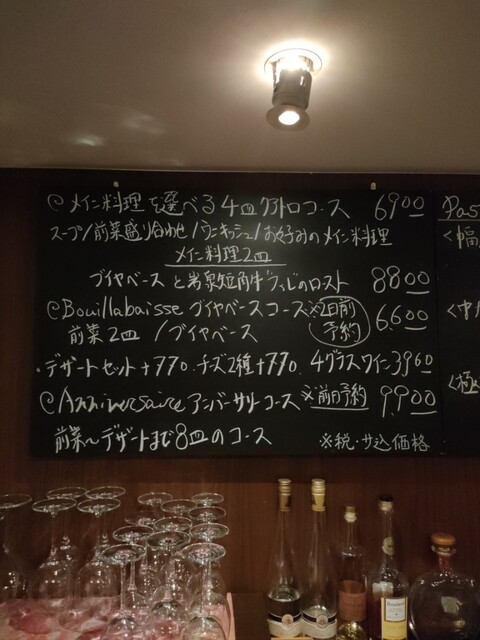 @メイン料理を選べる4皿クアトロコース 6900
スープ/前菜盛り合わせ/ウニキッシュ/お好みのメイン料理
メイン料理2皿
ブイヤベースと岩泉短角牛のロースト 8800
@Bouillabaisse ブイヤベースコース ※2日前予約 6600
前菜2皿 /ブイヤベース
・デザートセット+770. チーズ2種+770. 4グラスワイン3960
@Anniversaire アンバーサリーコース ※前日予約 9900
前菜〜デザートまで8皿のコース ※税・サ込価格
Pas
<幅
<中
<極